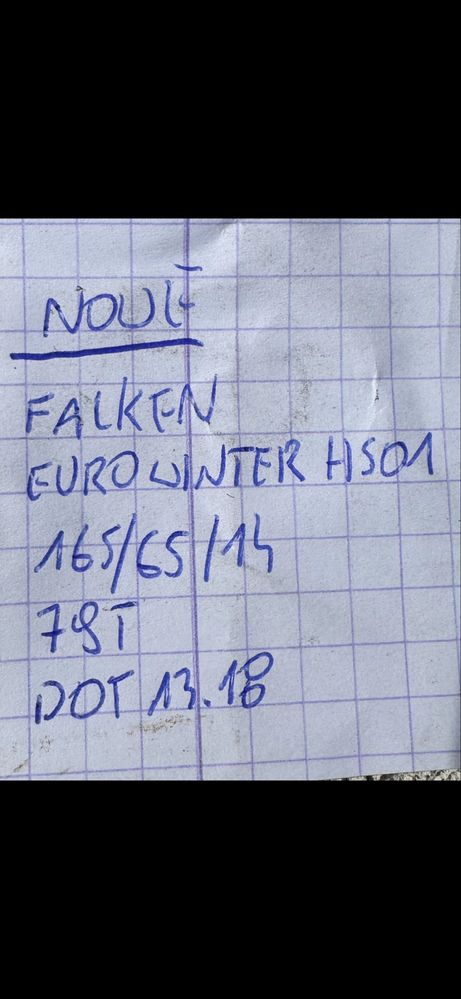 NOUĖ
FALKEN
EUROWINTER HS01
165/65/14
79T
DOT 13.18